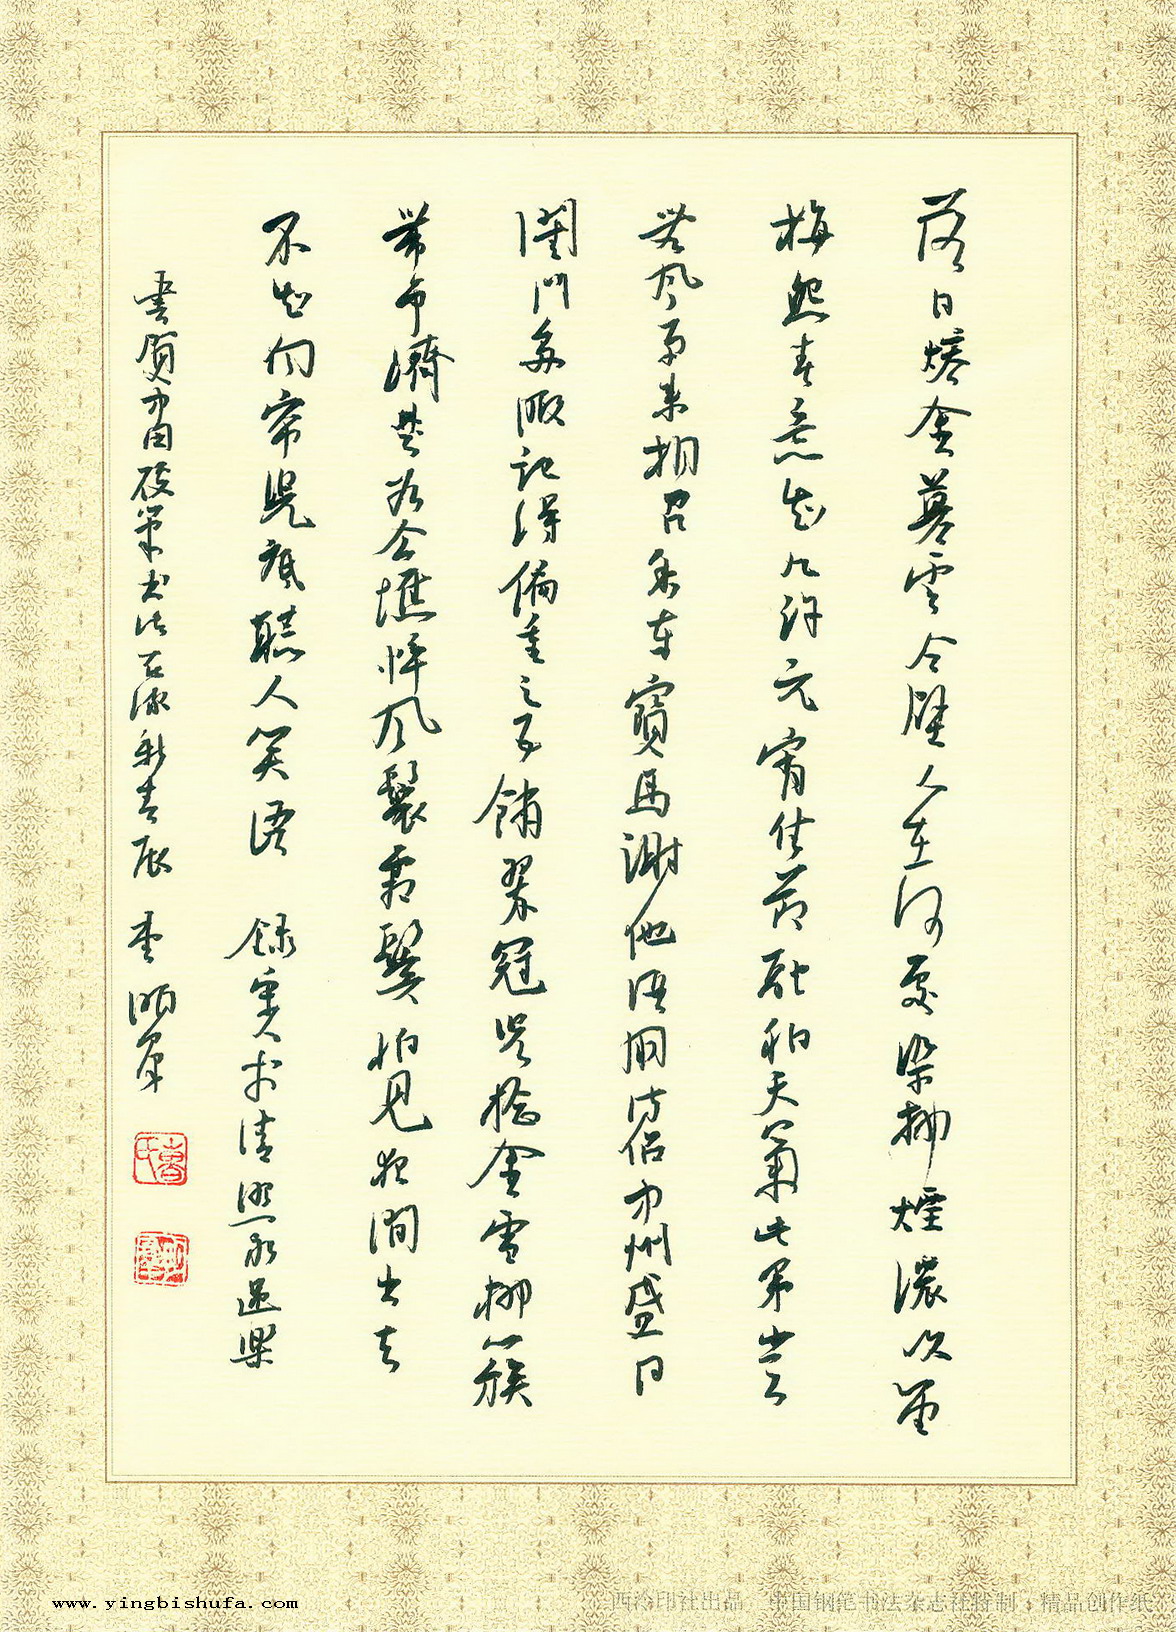 落日熔金暮雲合璧人在何處染柳煙濃吹笛
梅怨春意知几許元宵佳節融和天氣次第豈
無風雨來相召香車寶馬謝他酒朋詩侶中州盛日
閨門多暇記得偏重三五鋪翠冠兒捻金雪柳簇
帶爭濟楚如今憔悴風鬟霜鬢怕見夜間出去
不如向帘兒底聽人笑語 錄李清照永遇樂
書賀中国硬筆书法在線新春
www.yingbishufa.com
西泠印社出品 中国钢笔书法杂志社特制 精品创作纸